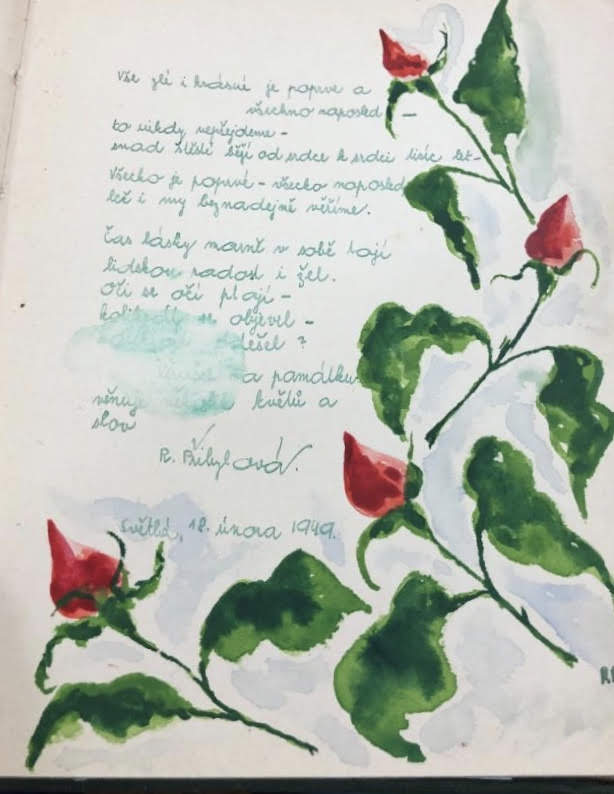 Vše zlé i krásné je poprve a
všechno naposled —
to nikdy nepřejdeme –
snad štěstí běží od srdce k srdci tisíc let –
Všecko je poprvé – všecko naposled
leč i my beznadejně věříme.
Čas lásky marně v sobě tají
lidskou radost i žel.
Oči se očí ptají –
se objevil –
?
a památku
věnuje květů a
slov
R. Přibylová.
Světlá, 18. února 1949.